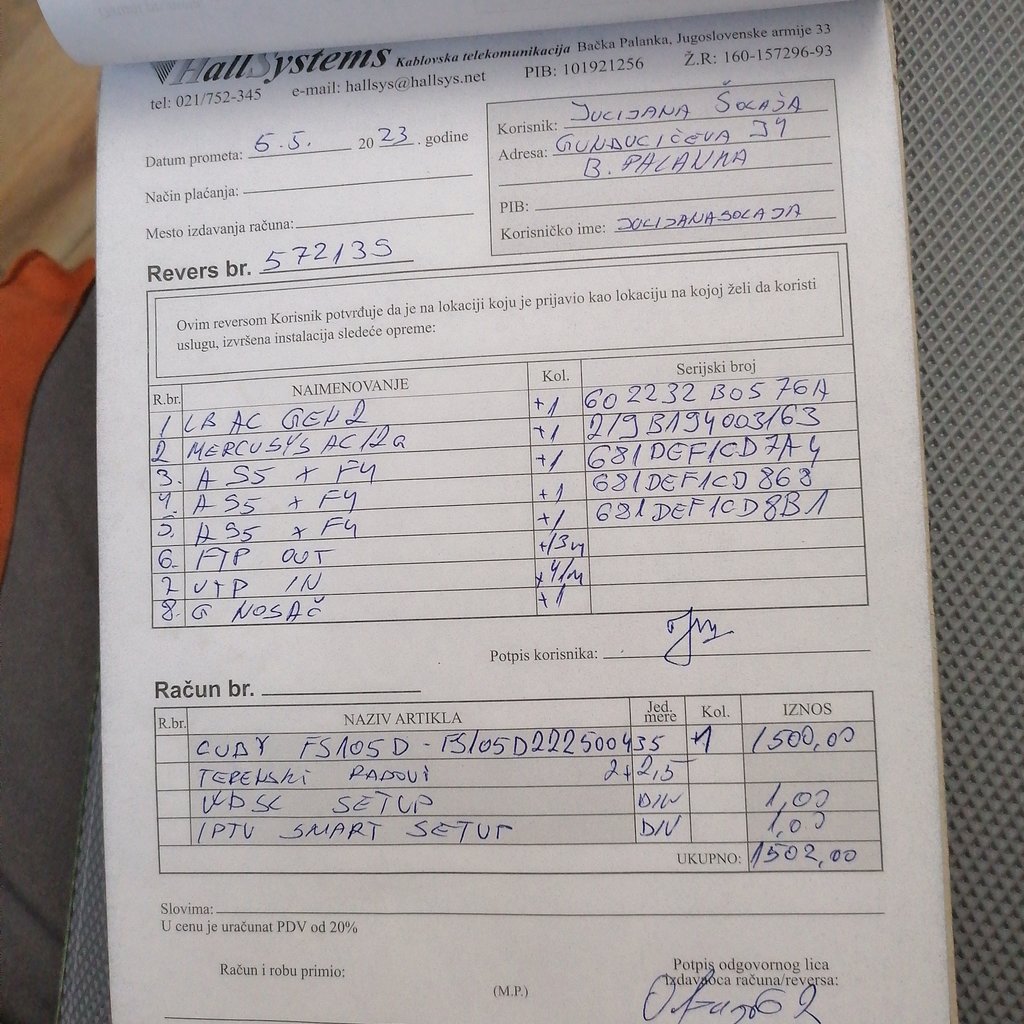 HallSystems Kablovska telekomunikacija Bačka Palanka, Jugoslovenske armije 33
tel: 021/752-345 e-mail: hallsys@hallsys.net PIB: 101921256 Ž.R: 160-157296-93
Datum prometa: 5.5. 2023. godine
Način plaćanja:
Mesto izdavanja računa:
Korisnik: JULIJANA ŠOLAJA
Adresa: GUNDULIĆEVA 34
B. PALANKA
PIB:
Korisničko ime: JULIJANASOLAJA
Revers br. 572135
Ovim reversom Korisnik potvrđuje da je na lokaciji koju je prijavio kao lokaciju na kojoj želi da koristi
uslugu, izvršena instalacija sledeće opreme:
R.br. NAIMENOVANJE Kol. Serijski broj
1 LB AC GEN2 +1 602232B0576A
2 MERCUSYS AC12G +1 219B194003163
3. A S5 + F4 +1 681DEF1CD7A4
4. A S5 + F4 +1 681DEF1CD868
5. A S5 + F4 +1 681DEF1CD8B1
6. FTP OUT +13m
7 UTP IN +41m
8. G NOSAČ +1
Potpis korisnika:
Račun br.
R.br. NAZIV ARTIKLA Jed. mere Kol. IZNOS
CUDY FS105D - FS105D222500435 +1 1500,00
TERENSKI RADOVI 2+2,5
VDSL SETUP DIN 1,00
IPTV SMART SETUP DIN 1,00
UKUPNO: 1502,00
Slovima:
U cenu je uračunat PDV od 20%
Račun i robu primio:
(M.P.)
Potpis odgovornog lica
izdavaoca računa/reversa: